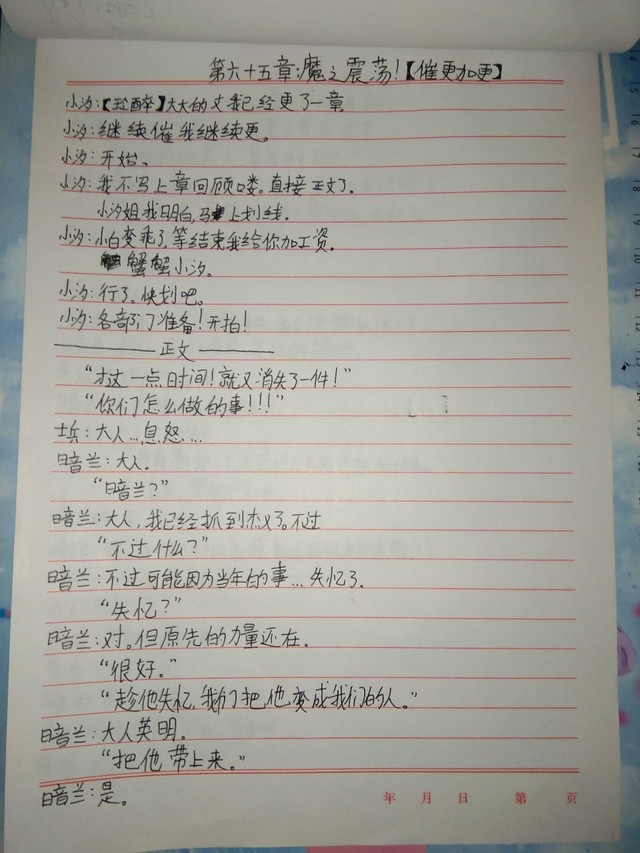 第六十五章:魔之震荡!【催更加更】
小汐:【醉】大大的文我已经更了一章
小汐:继续催我继续更。
小汐:开始。
小汐:我不写上章回顾喽。直接正文了。
小汐姐我明白,马上划线。
小汐:小白变乖了,等结束我给你加工资。
蟹蟹小汐。
小汐:行了。快划吧。
小汐:各部门准备!开拍!
————正文————
“才这一点时间!就又消失了一件!”
“你们怎么做的事!!!”
士兵:大人…息怒…
暗兰:大人。
“暗兰?”
暗兰:大人,我已经抓到杰义了。不过
“不过什么?”
暗兰:不过可能因为当年的事…失忆了.
“失忆?”
暗兰:对。但原先的力量还在.
“很好。”
“趁他失忆,我们把他变成我们的人。”
暗兰:大人英明。
“把他带上来。”
暗兰:是。
年 月 日 第 页